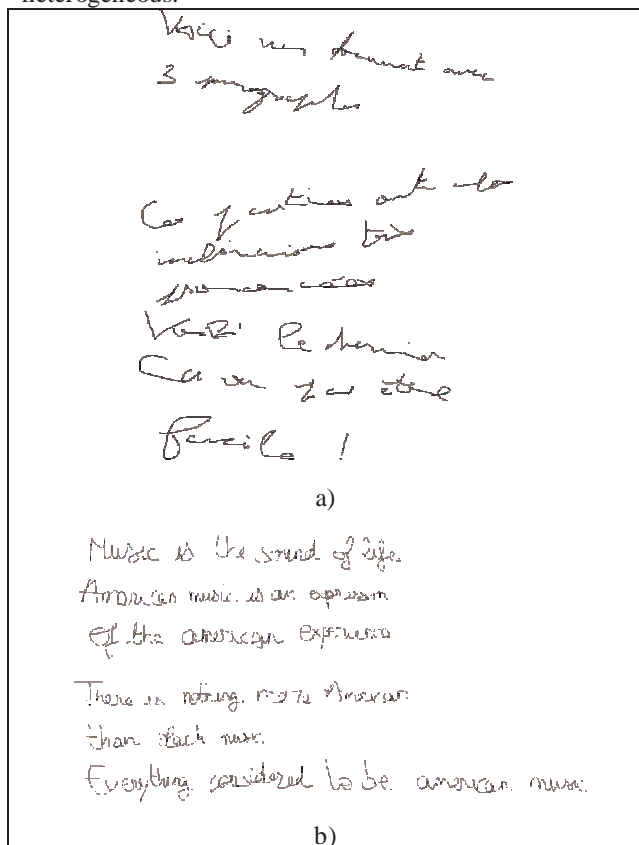 heterogeneous.
Voici un format avec
3 paragraphes
Ces parties ont des
inclinaisons très
prononcées
Voici le dernier
Ca va pas être
facile !
a)
Music is the sound of life
American music is an expression
Of the american experience
There is nothing more American
than black music
Everything considered to be american music
b)